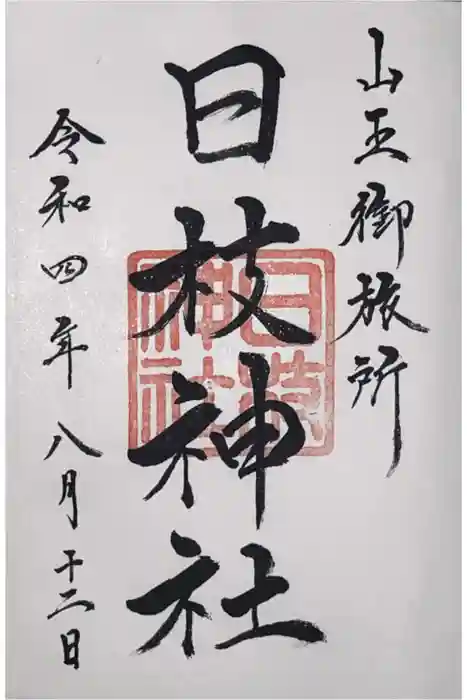 山王御旅所
日枝神社
日枝神社
令和四年八月十二日